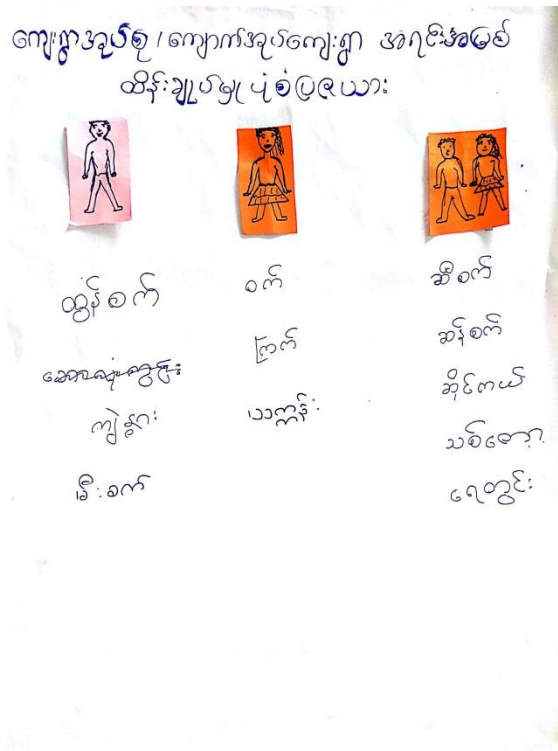 ကျေးရွာအုပ်စု / ကျောက်အုပ်ကျေးရွာ အရင်းအမြစ်
ထိန်းချုပ်မှု ပုံစံပြဇယား
ထွန်စက်
ကျွဲနွား
မီးစက်
ဝက်
ကြက်
ယာက္ကန်း
ဆီစက်
ဆန်စက်
ဆိုင်ကယ်
သစ်တော
ရေတွင်း